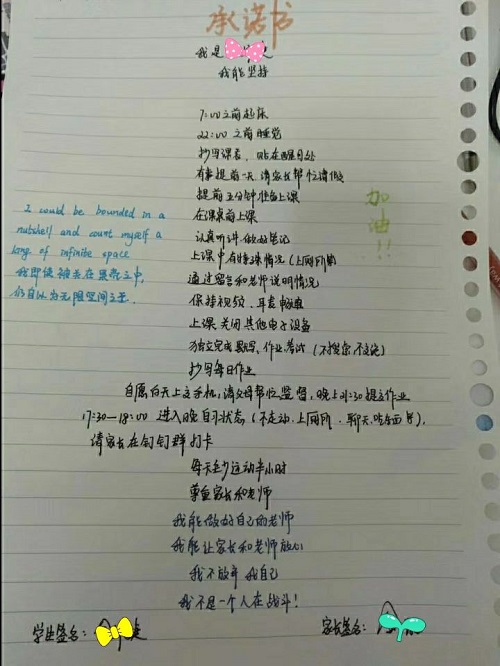 承诺书
我是
我能坚持
7:00之前起床
22:00之前睡觉
抄写课表、贴在醒目处
有事提前一天请家长帮忙请假
提前五分钟准备上课
在课桌前上课
认真听讲做好笔记
上课中有特殊情况(上厕所等)
通过留言和老师说明情况
保持视频、耳麦畅通
上课关闭其他电子设备
独立完成默写、作业、考试(不搜索,不交流)
抄写每日作业
自愿白天上交手机,请父母帮忙监督,晚上21:30提交作业
17:30—18:00 进入晚自习状态(不走动、上厕所、聊天、吃东西等),
请家长在钉钉群打卡
每天至少运动半小时
尊重家长和老师
我能做好自己的老师
我能让家长和老师放心
我不放弃我自己
我不是一个人在战斗!
学生签名:
家长签名:
I could be bounded in a
nutshell and count myself a
king of infinite space
我即使被关在果壳之中,
仍自以为无限空间之王.
加油!!